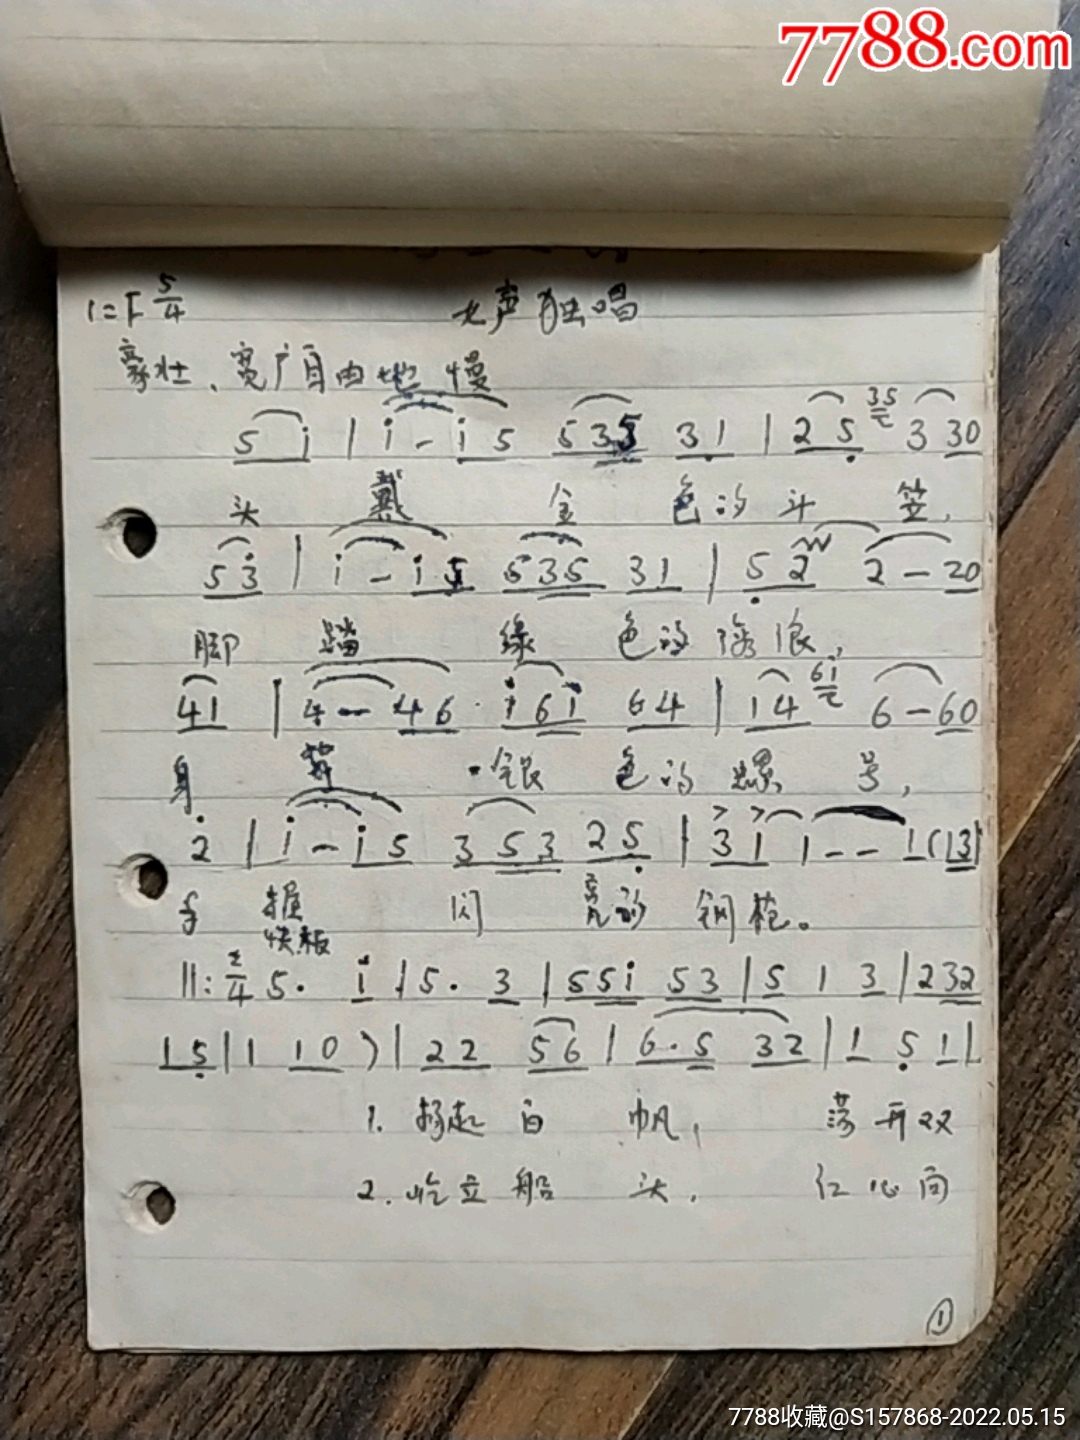 7788.com
1=F 5/4 女声独唱
豪壮、宽广自由地 慢
5 i | i - i 5 5 3 5 3 1 | 2 5 35 3 3 0
头 戴 金 色的斗 笠,
5 3 | i - i 5 5 3 5 3 1 | 5 2 2 - 2 0
脚 踏 绿 色的 浪,
4 1 | 4 - 4 6 · i 6 i 6 4 | 1 4 6i 6 - 6 0
身 背 银 色的螺 号,
2 | i - i 5 3 5 3 2 5 | 3 1 1 - - 1 ( 1 3 |
手 握 闪 亮的 钢枪。
快板
||: 2/4 5 · i | 5 · 3 | 5 5 i 5 3 | 5 1 3 | 2 3 2
1 5 | 1 1 0 ) | 2 2 5 6 | 6 · 5 3 2 | 1 5 1 |
1. 扬起 白 帆, 荡开双
2. 屹立 船 头, 红心向
①
7788收藏@S157868-2022.05.15